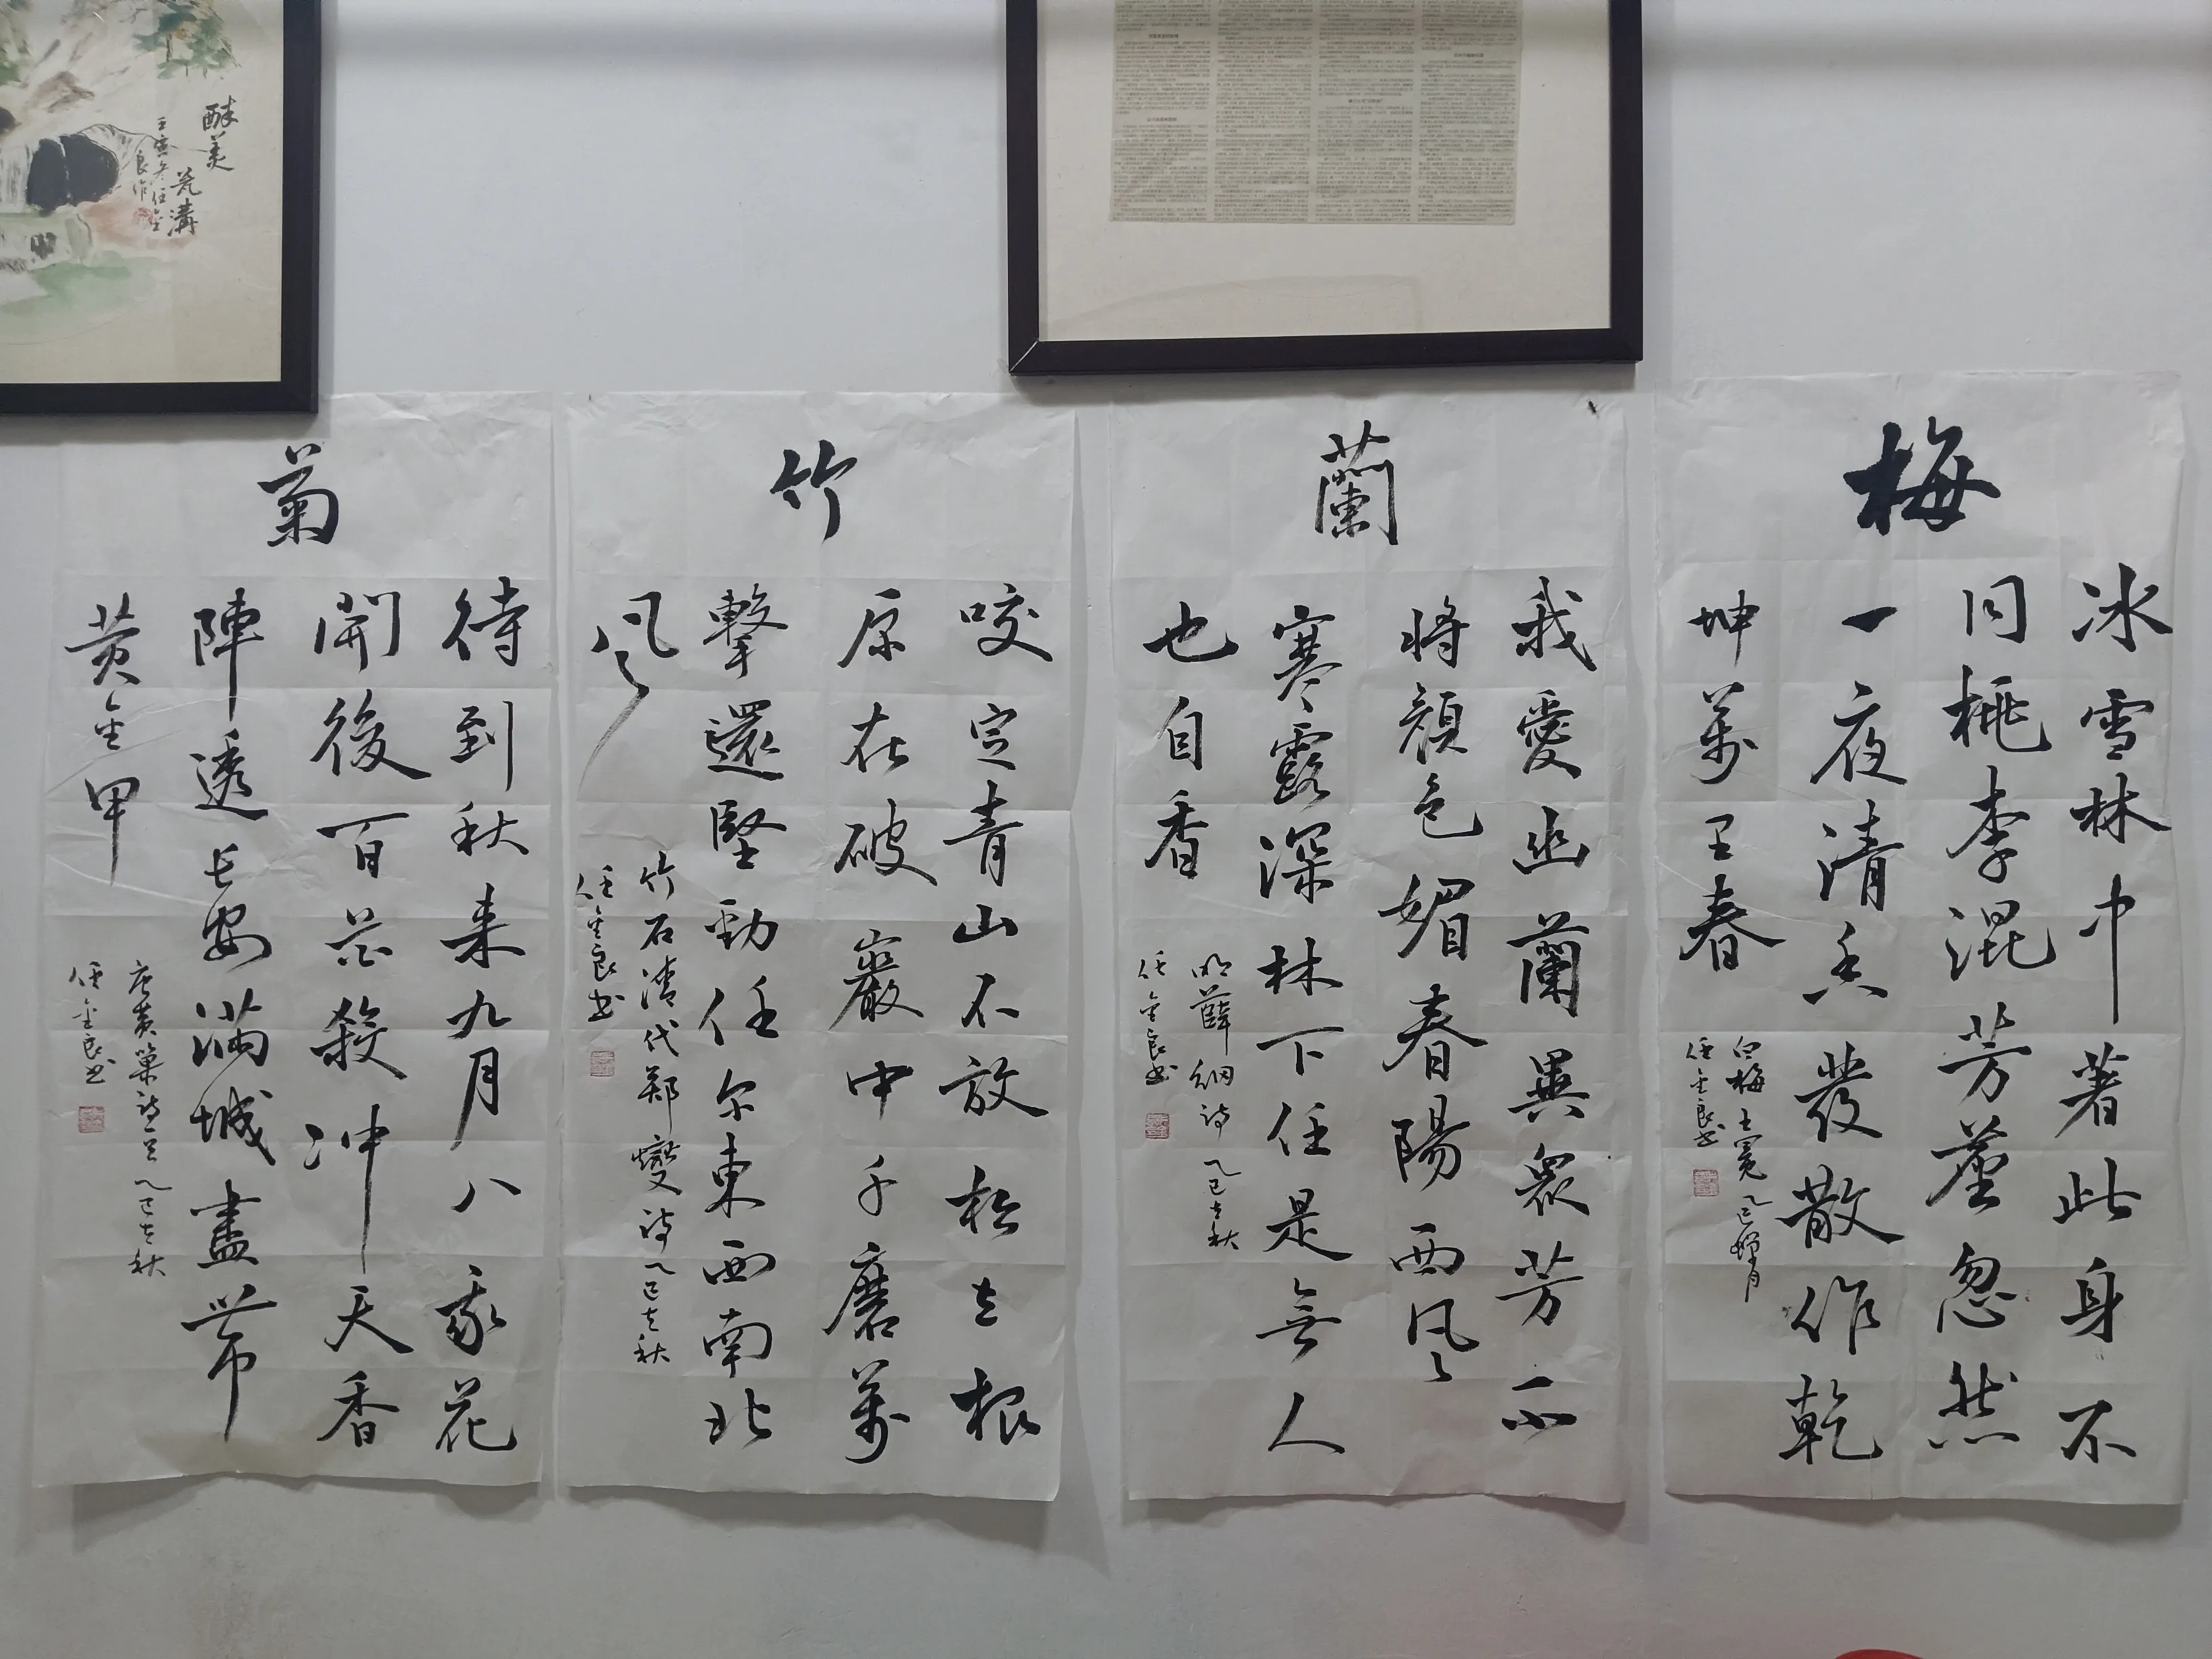 梅
冰雪林中著此身不
同桃李混芳塵忽然
一夜清香發散作乾
坤萬里春
白梅 王冕 乙巳蟬月
任金良书
蘭
我愛幽蘭異眾芳不
將顏色媚春陽西风
寒露深林下任是無人
也自香
明薛網诗 乙巳立秋
任金良书
竹
咬定青山不放松立根
原在破巖中千磨萬
擊還堅勁任尔東西南北
风
竹石清代郑燮诗乙巳立秋
任金良书
菊
待到秋来九月八我花
開後百花殺冲天香
陣透长安满城盡带
黄金甲
唐黄巢诗一首乙巳立秋
任金良书
醉美
瓮溝
壬寅冬任金
良作